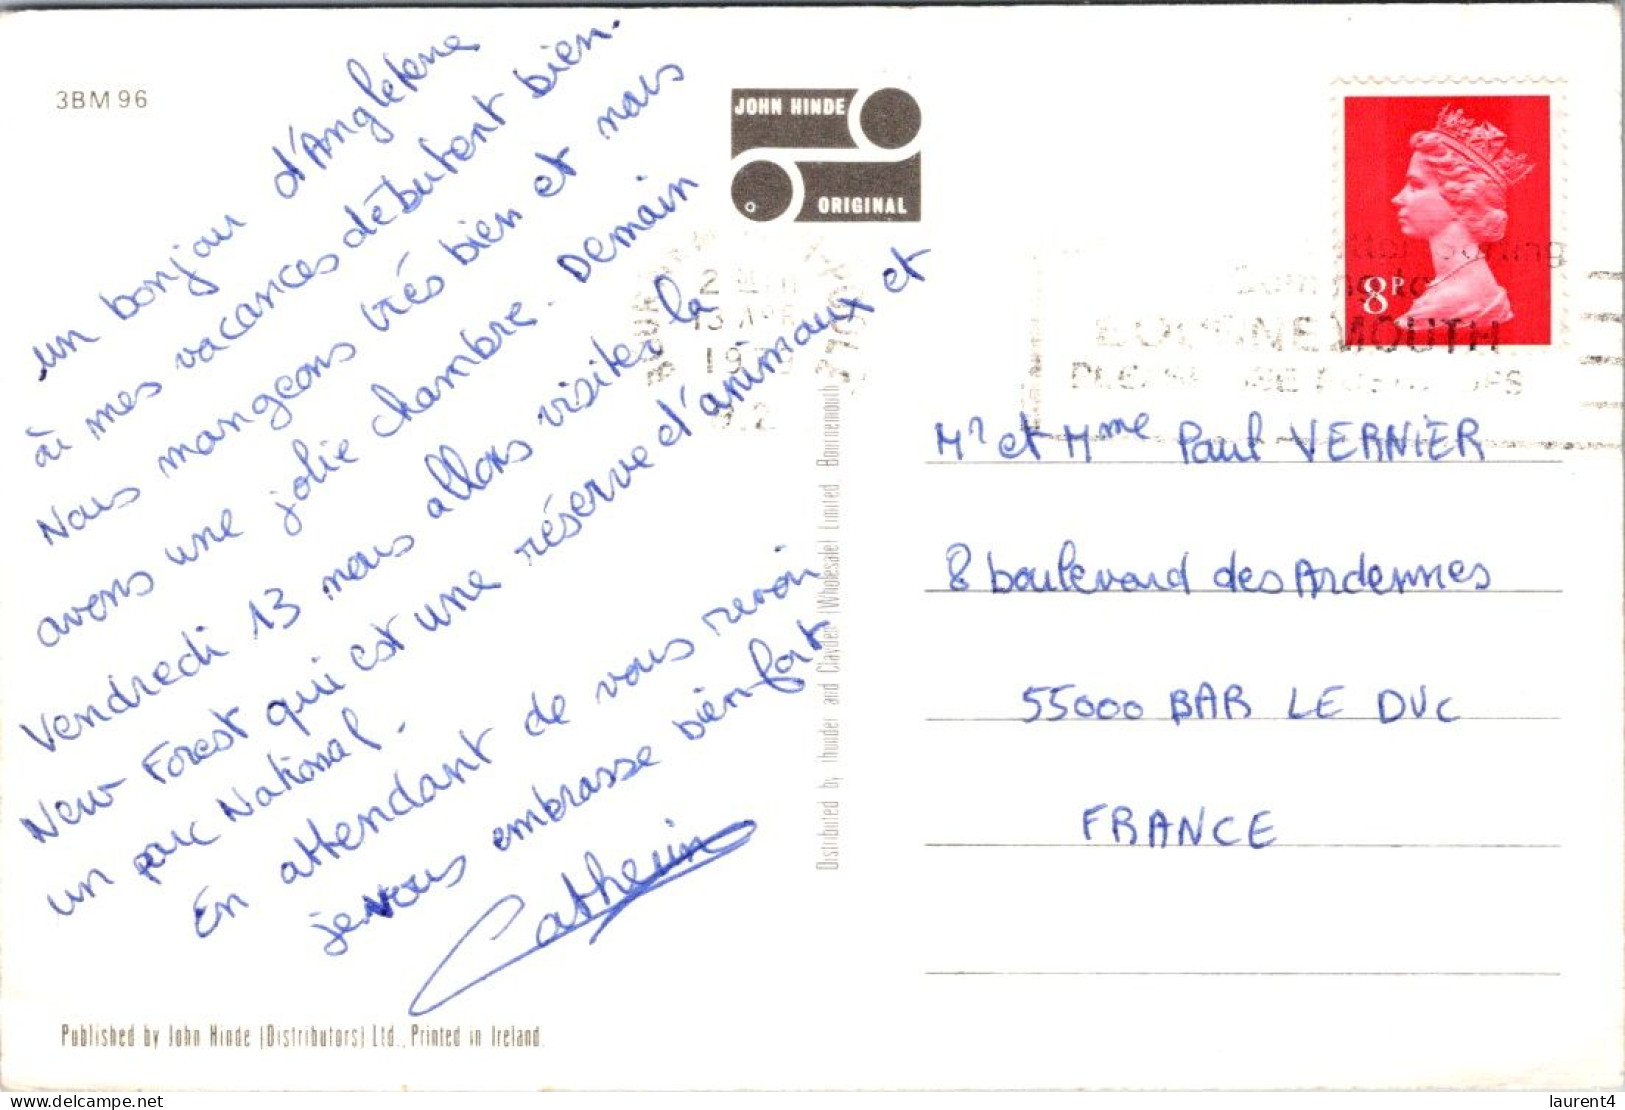 3BM96
un bonjour d'Angleterre
où mes vacances débutent bien.
Nous mangeons très bien et nous
avons une jolie chambre. Demain
Vendredi 13 nous allons visiter la
New Forest qui est une réserve d'animaux et
un parc National.
En attendant de vous revoir
je vous embrasse bien fort
Catherine
Published by John Hinde (Distributors) Ltd., Printed in Ireland.
JOHN HINDE
ORIGINAL
Distributed by Thunder and Clayden (Wholesale) Limited Bournemouth
13 APR
197
8P
BOURNEMOUTH
Mr et Mme Paul VERNIER
8 boulevard des Ardennes
55000 BAR LE DUC
FRANCE
delcampe.net
laurent4